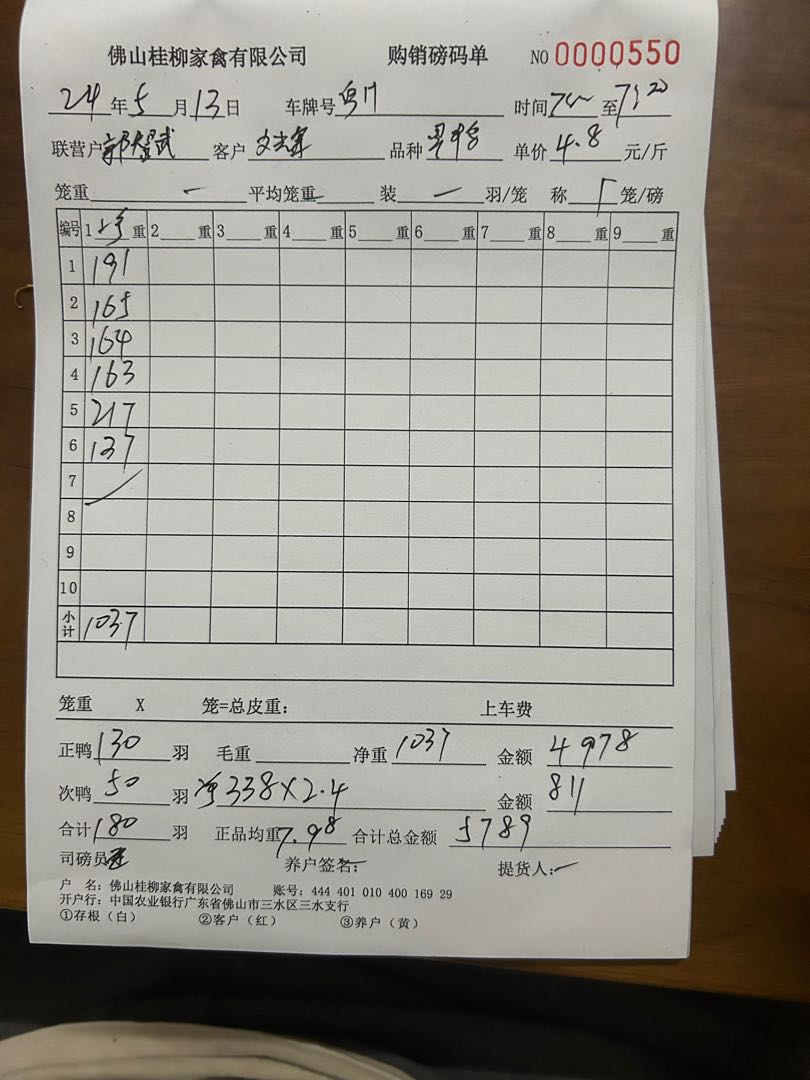 佛山桂柳家禽有限公司 购销磅码单 NO 0000550
24年5月13日 车牌号 时间 至7:20
联营户 客户 品种 单价4.8元/斤
笼重 一 平均笼重 装 一 羽/笼 称 笼/磅
编号 1 重 2 重 3 重 4 重 5 重 6 重 7 重 8 重 9 重
1 191
2 165
3 164
4 163
5 217
6 137
7
8
9
10
小计 1037
笼重 X 笼=总皮重: 上车费
正鸭130羽 毛重 净重1037 金额4978
次鸭50羽 净338×2.4 金额811
合计180羽 正品均重7.98 合计总金额5789
司磅员 养户签名: 提货人:
户 名: 佛山桂柳家禽有限公司 账号: 444 401 010 400 169 29
开户行: 中国农业银行广东省佛山市三水区三水支行
①存根(白) ②客户(红) ③养户(黄)